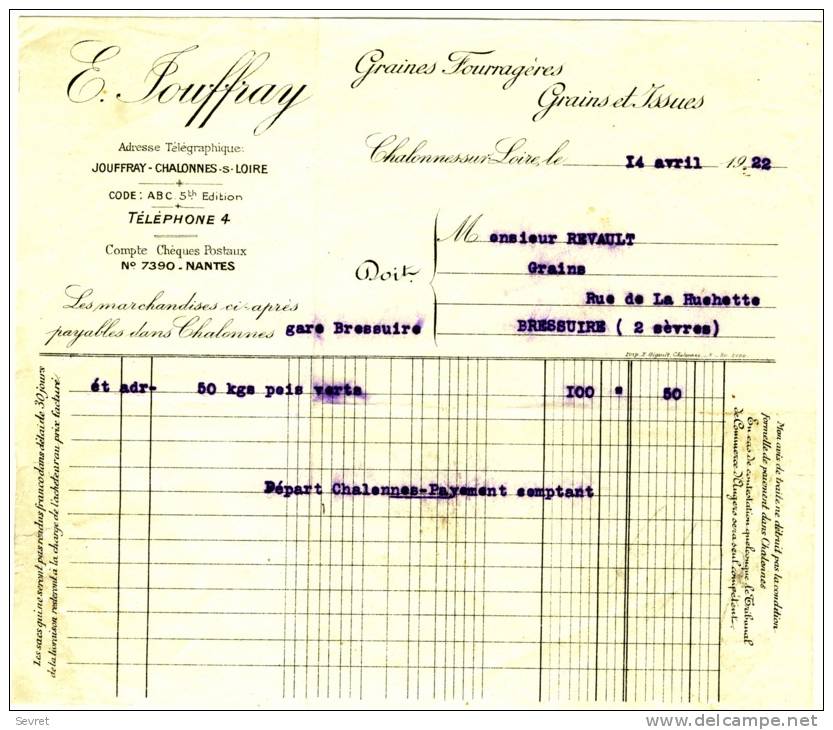 E. Jouffray
Graines Fourragères
Grains et Issues
Adresse Télégraphique:
JOUFFRAY-CHALONNES-S-LOIRE
CODE: ABC 5th Edition
TÉLÉPHONE 4
Compte Chèques Postaux
No 7390 - NANTES
Chalonnes-sur-Loire, le 14 avril 1922
Doit
M onsieur REVAULT
Grains
Rue de La Huchette
BRESSUIRE ( 2 sèvres)
Les marchandises ci-après
payables dans Chalonnes gare Bressuire
ét adr- 50 kgs pois verts 100 " 50
Départ Chalonnes-Payement comptant
Les sacs qui ne seront pas rendus franco dans délai de 30 jours
de la livraison resteront à la charge de l'acheteur au prix facturé.
Mon avis de traite ne détruit pas la condition
formelle de paiement dans Chalonnes
En cas de contestation quelconque le Tribunal
de Commerce d'Angers sera seul compétent.
Sevret
www.delcampe.net